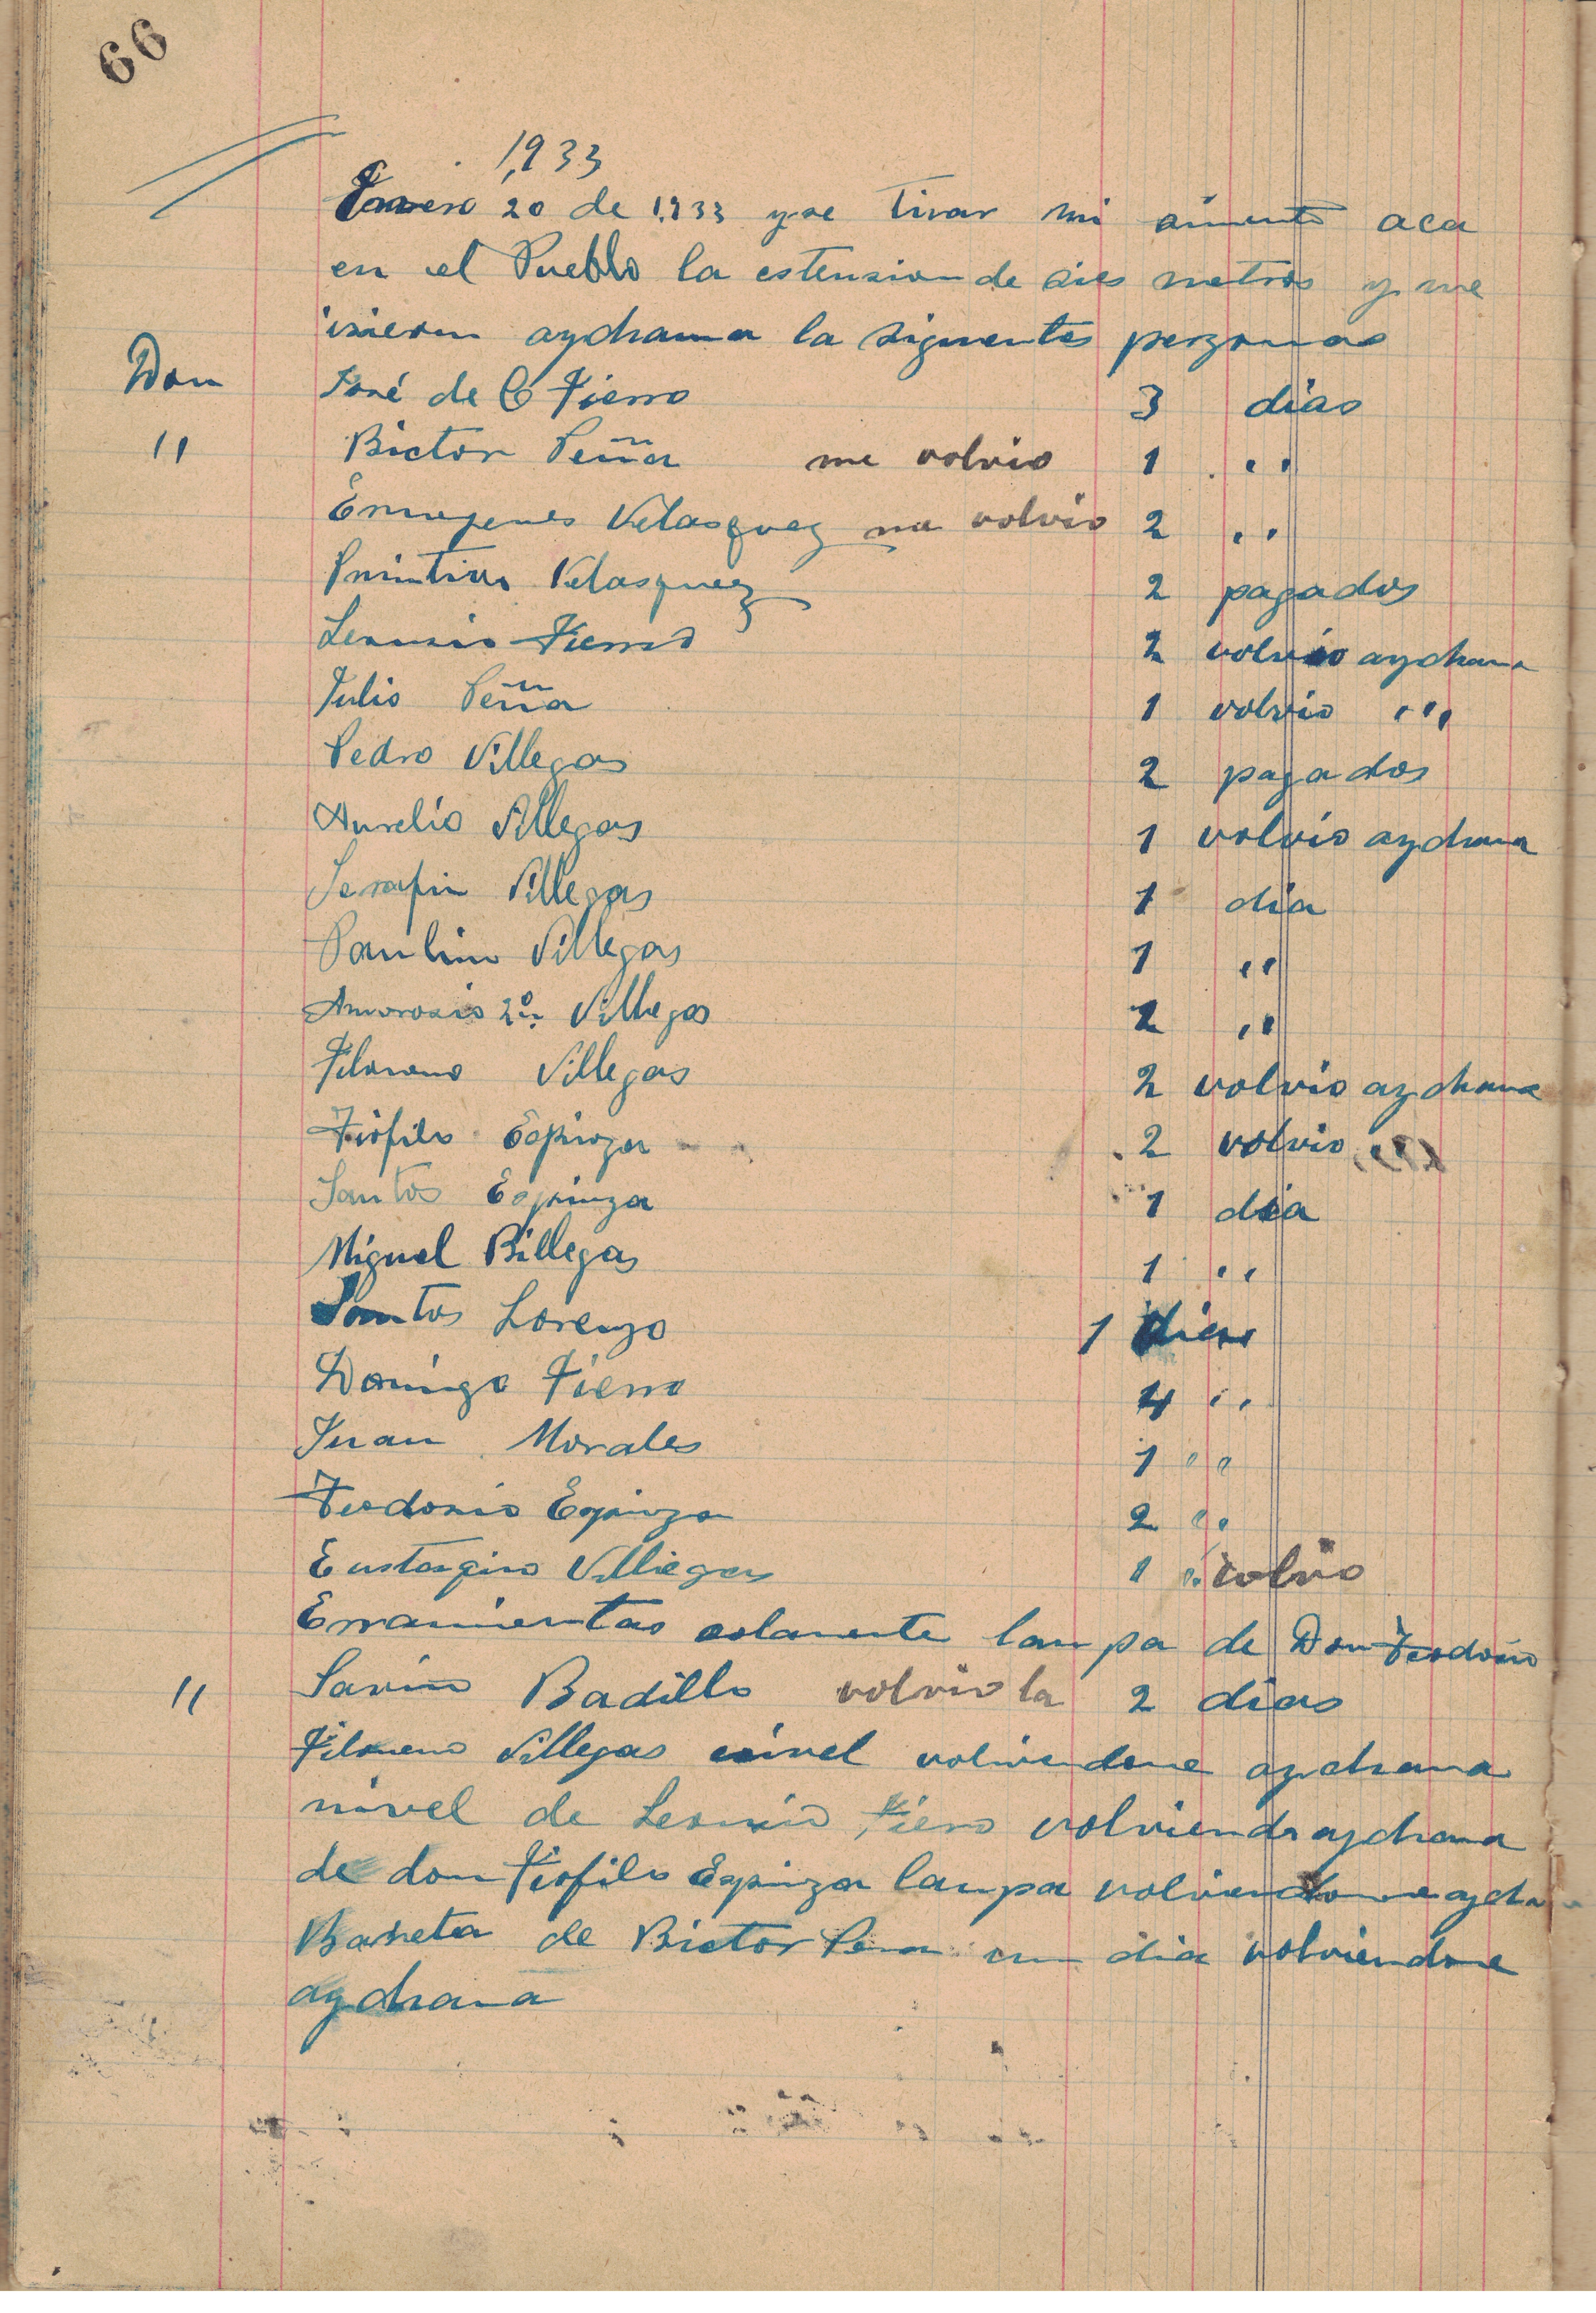 66
1,933
Enero 20 de 1,933 yse tirar mi simento aca
en el Pueblo la estension de dies metros y me
isieron aychama la siguentes perzonas
Don José de C Fierro 3 dias
" Bictor Peña me volvio 1 "
Ermogenes Velasquez me volvio 2 "
Primitivo Velasquez 2 pagados
Leoncio Fierro 2 volvio aychama
Julio Peña 1 volvio "
Pedro Villegas 2 pagados
Aurelio Villegas 1 volvio aychama
Serafin Villegas 1 dia
Paulino Villegas 1 "
Amorosio 2º Villegas 2 "
Filomeno Villegas 2 volvio aychama
Tiofilo Espinoza 2 volvio
Santos Espinza 1 dia
Miguel Billegas 1 "
Santos Lorenzo 1 dias
Domingo Fierro 4 "
Juan Morales 1 "
Teodosio Espinza 2 "
Eustaqino Villiegas 1 " volvio
Erramientas solamente lampa de Don Teodosio
" Savino Badillo volvio la 2 dias
Filomeno Villegas nivel volviendome aychama
nivel de Leoncio Fiero volviendo aychama
de don Tiofilo Espinza lampa volviendome aycha
Barreta de Bictor Pena un dia volviendome
aychama